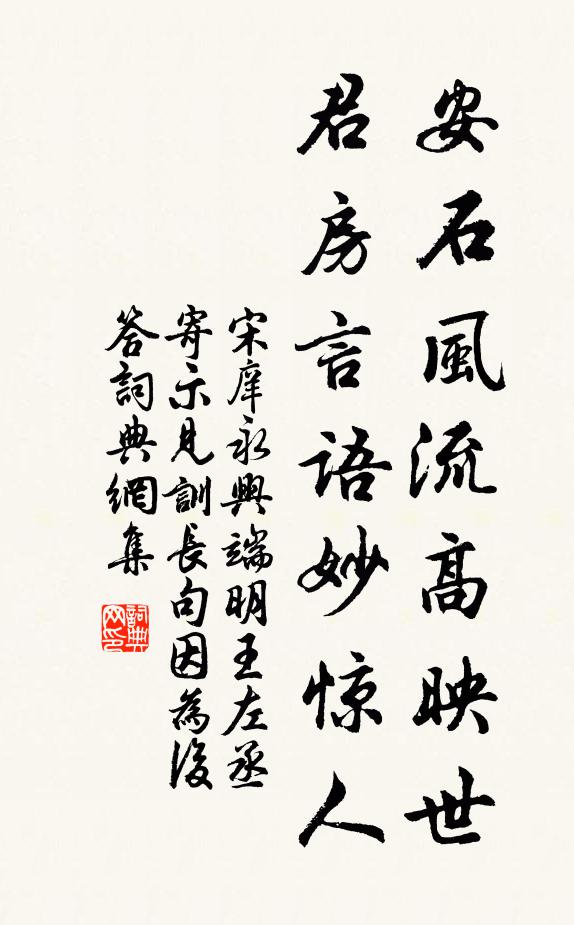 安石風流高映世
君房言語妙惊人
宋庠永興端明王左丞
寄示見訓長句因為復
答詞典網集
詞典网印